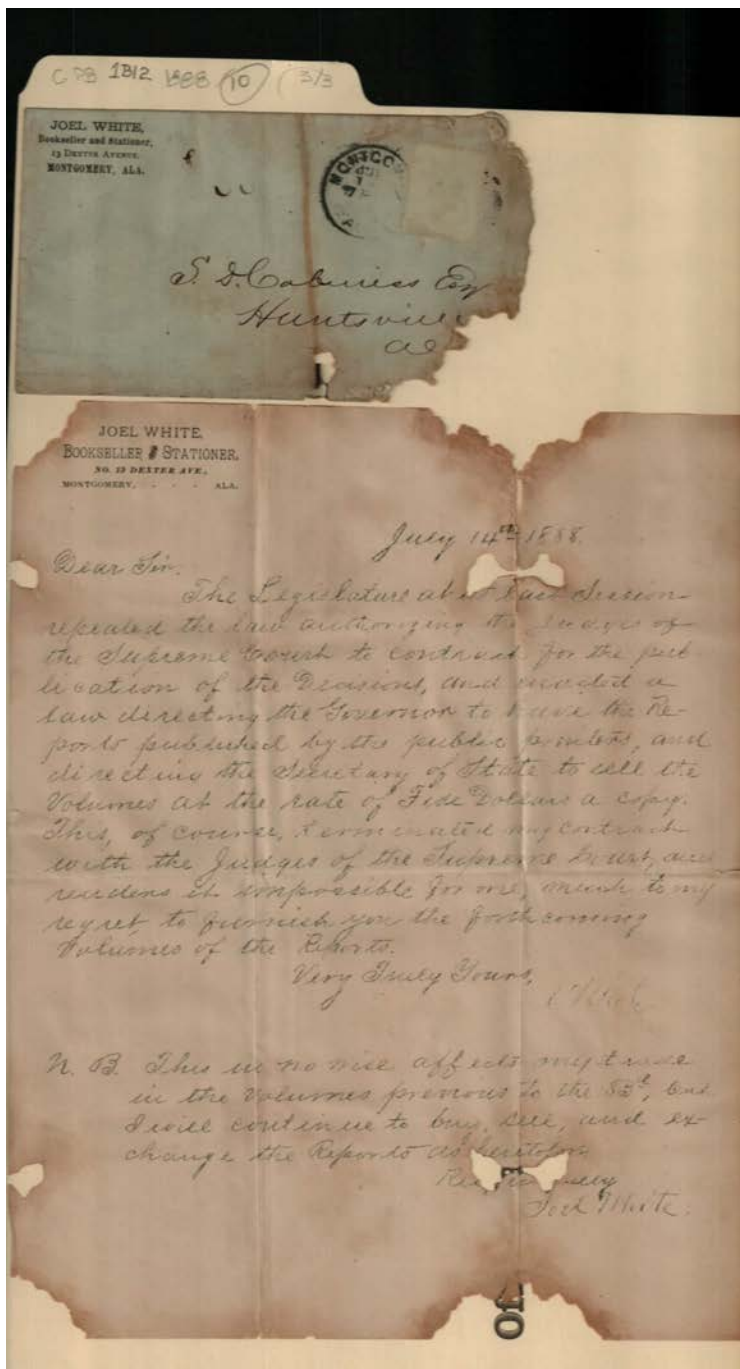 CPB 1B12 1888 10 (3/3
JOEL WHITE,
Bookseller and Stationer,
13 DEXTER AVENUE.
MONTGOMERY, ALA.
MONTGOM
S. D. Cabiniss Esq
Huntsville
JOEL WHITE,
BOOKSELLER & STATIONER,
NO. 13 DEXTER AVE,
MONTGOMERY, - - - ALA.
July 14th 1888.
Dear Sir.
The Legislature at its last Session
repealed the law authorizing the Judges of
the Supreme Court to contract for the pub
lication of the Decisions, and enacted a
law directing the Governor to have the Re-
ports published by the public printers, and
directing the Secretary of State to sell the
Volumes at the rate of Five Dollars a copy.
This, of course, terminated my contract
with the Judges of the Supreme Court, and
renders it impossible for me, much to my
regret, to furnish you the forthcoming
Volumes of the Reports.
Very Truly Yours,
N. B. This in no wise affects my trade
in the Volumes previous to the but
I will continue to buy, sell, and ex-
change the Reports as heretofore
Joel White.
Of